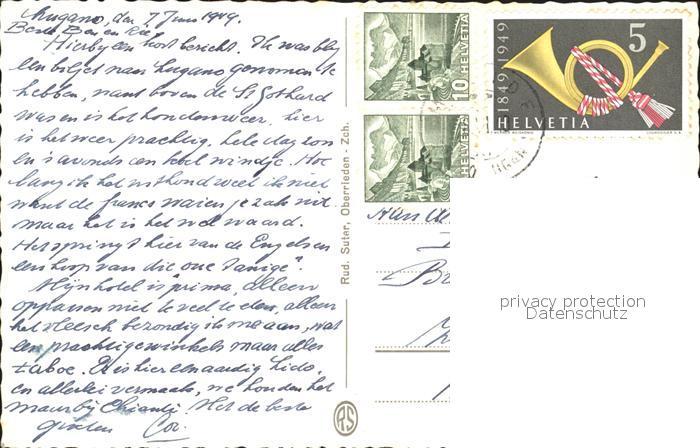 Lugano, den 7 Juni 1949.
Beste Ben en Ree,
Hierbij een kort bericht. Ik was blij
een biljet naar Lugano genomen te
hebben, want boven de St Gothard
was en is het hondenweer, hier
is het weer prachtig, hele dag zon
en 's avonds een koel windje. Hoe
lang ik het uithoud weet ik niet
want de francs waaien je zak uit
maar het is het wel waard.
Het springt hier van de Engelsen
een hoop van die oue Tanige".
Mijn hotel is prima, alleen
oppassen niet te veel te eten, alleen
het vleesch bezondig ik me aan, wat
een prachtige winkels maar alles
taboe. Er is hier een aardig Lido,
en allerlei vermaak, we houden het
maar bij Chianti. Met de beste
groeten Cor.
Rud. Suter, Oberrieden - Zch.
RS
10 HELVETIA
HELVETIA
1849-1949
5
HELVETIA
privacy protection
Datenschutz